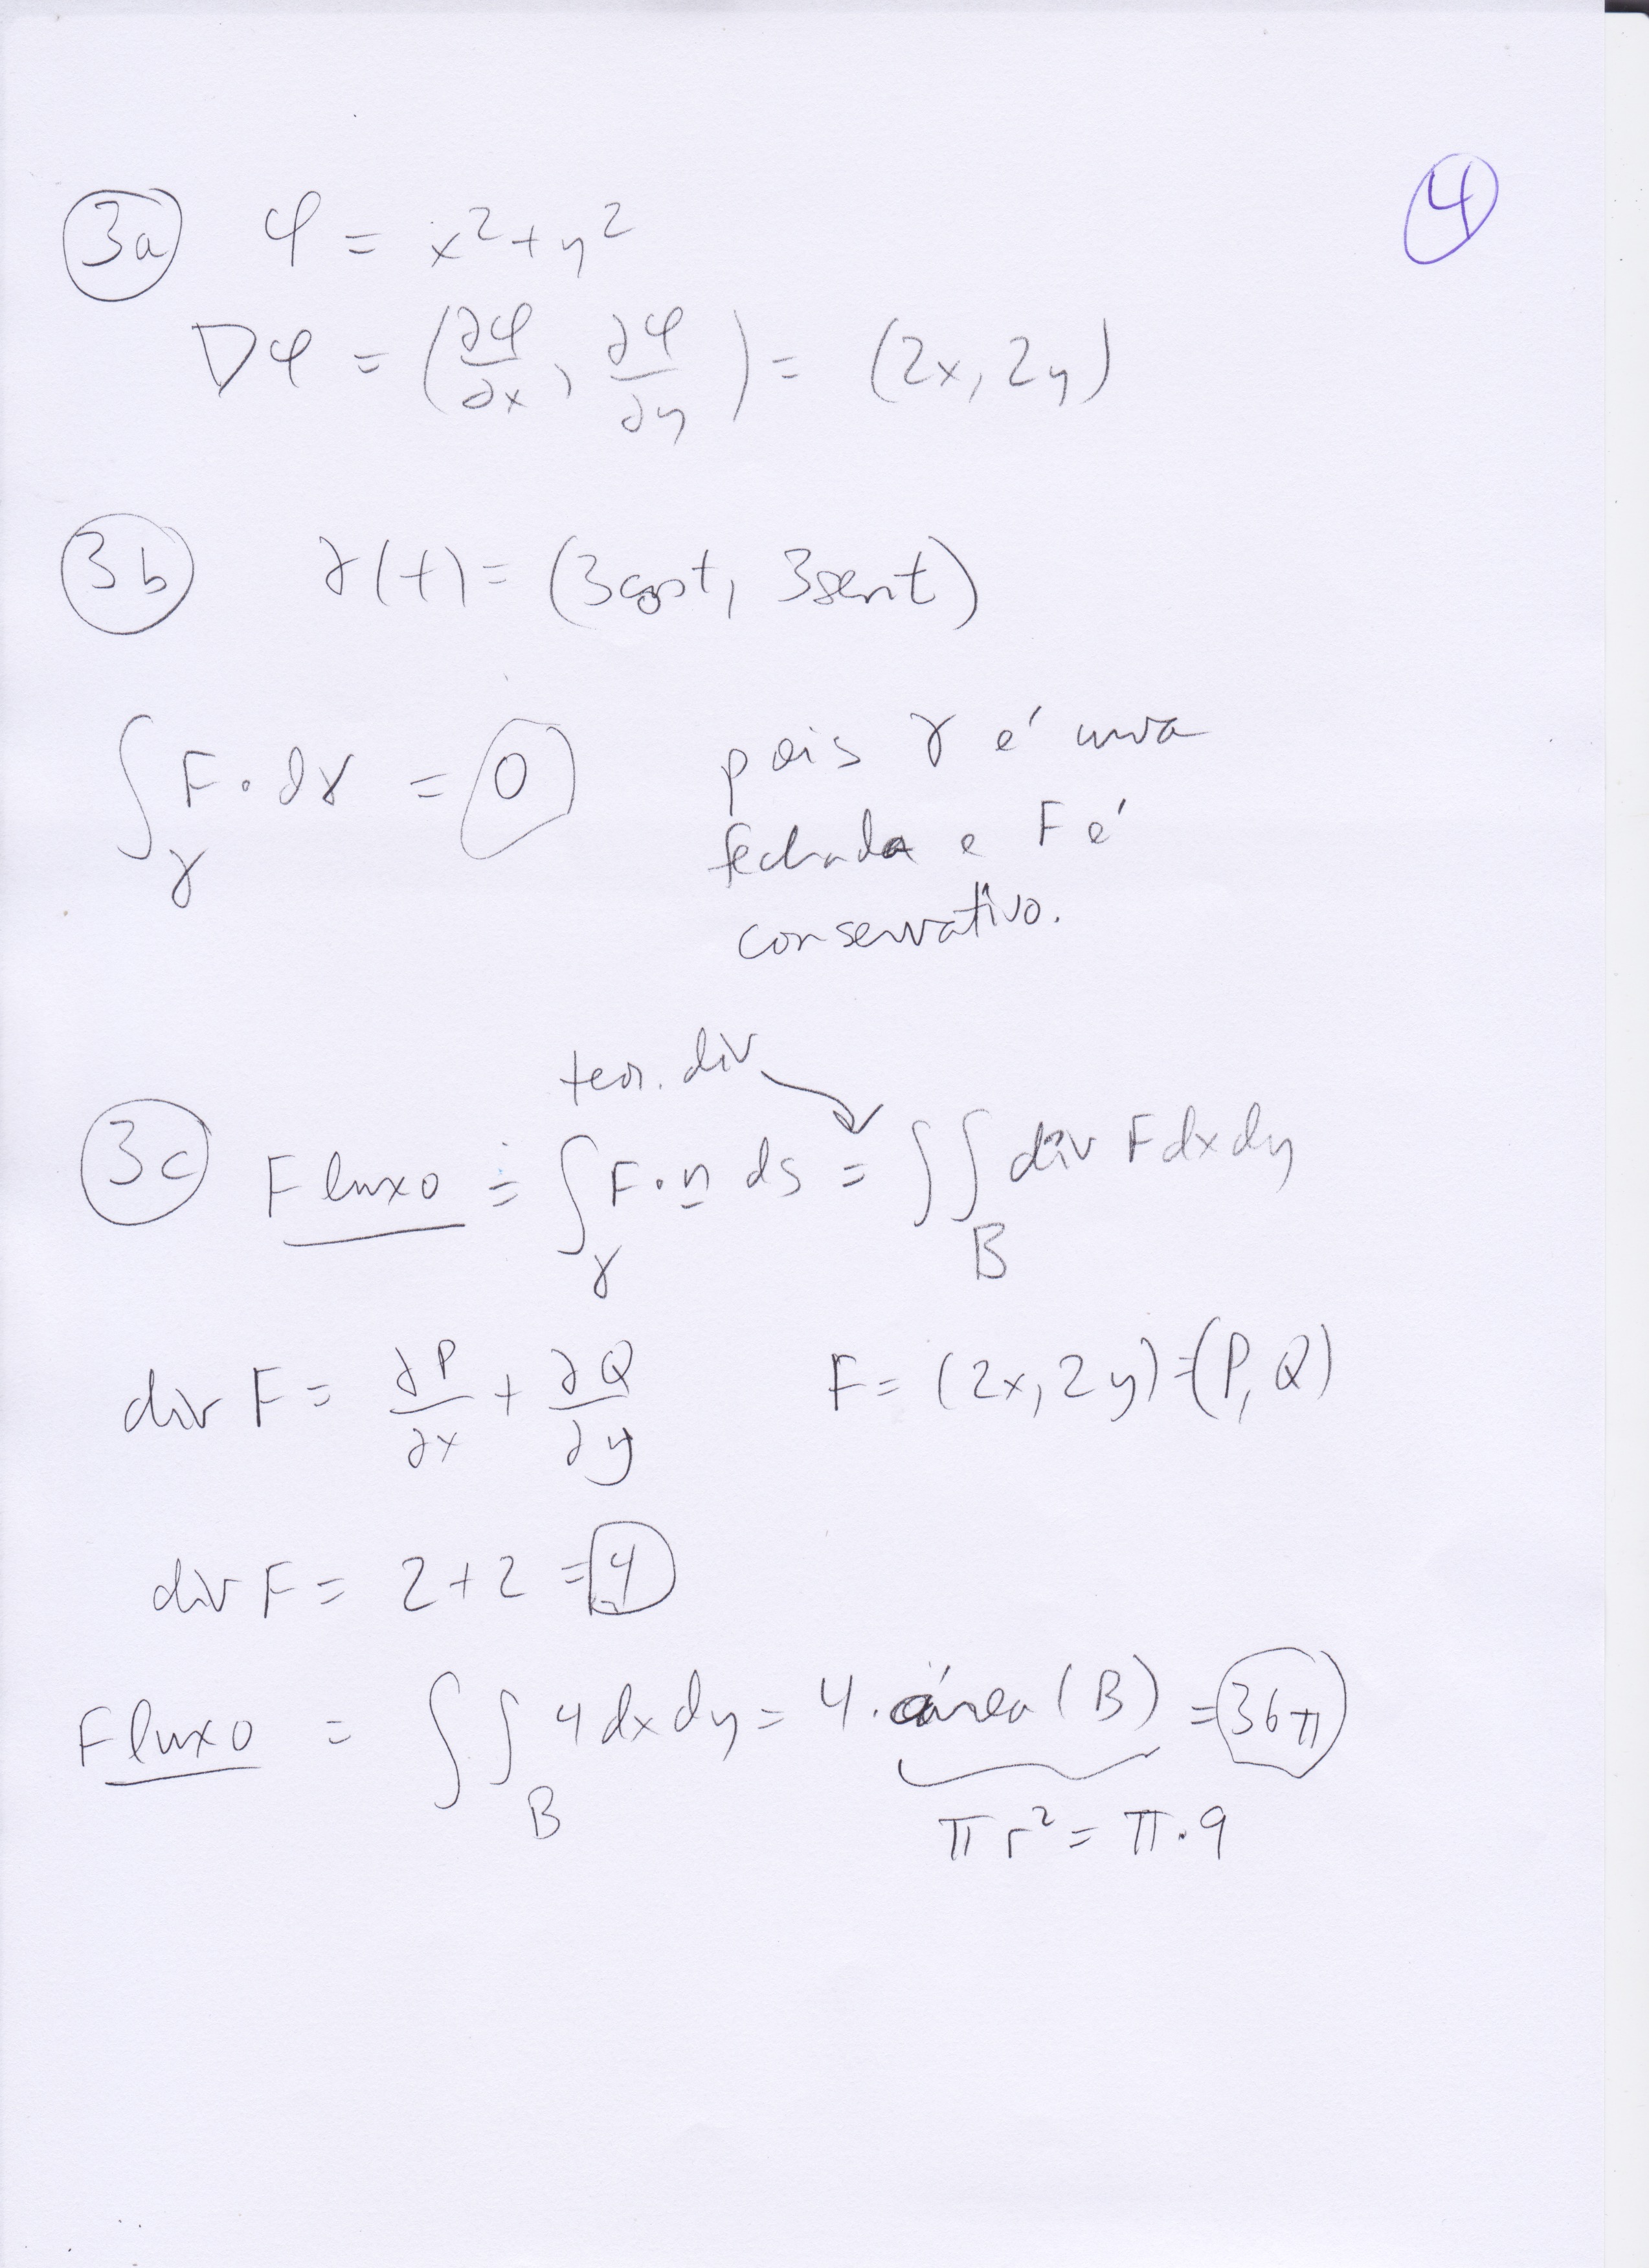 4
3a φ = x² + y²
∇φ = (∂φ/∂x, ∂φ/∂y) = (2x, 2y)
3b γ(t) = (3cost, 3sent)
∫_γ F · dγ = 0 pois γ é
fechada e F é
conservativo.
teor. div
3c Fluxo = ∫_γ F · n ds = ∫∫_B div F dxdy
div F = ∂P/∂x + ∂Q/∂y F = (2x, 2y) = (P, Q)
div F = 2 + 2 = 4
Fluxo = ∫∫_B 4 dxdy = 4 · área (B) = 36π
πr² = π · 9